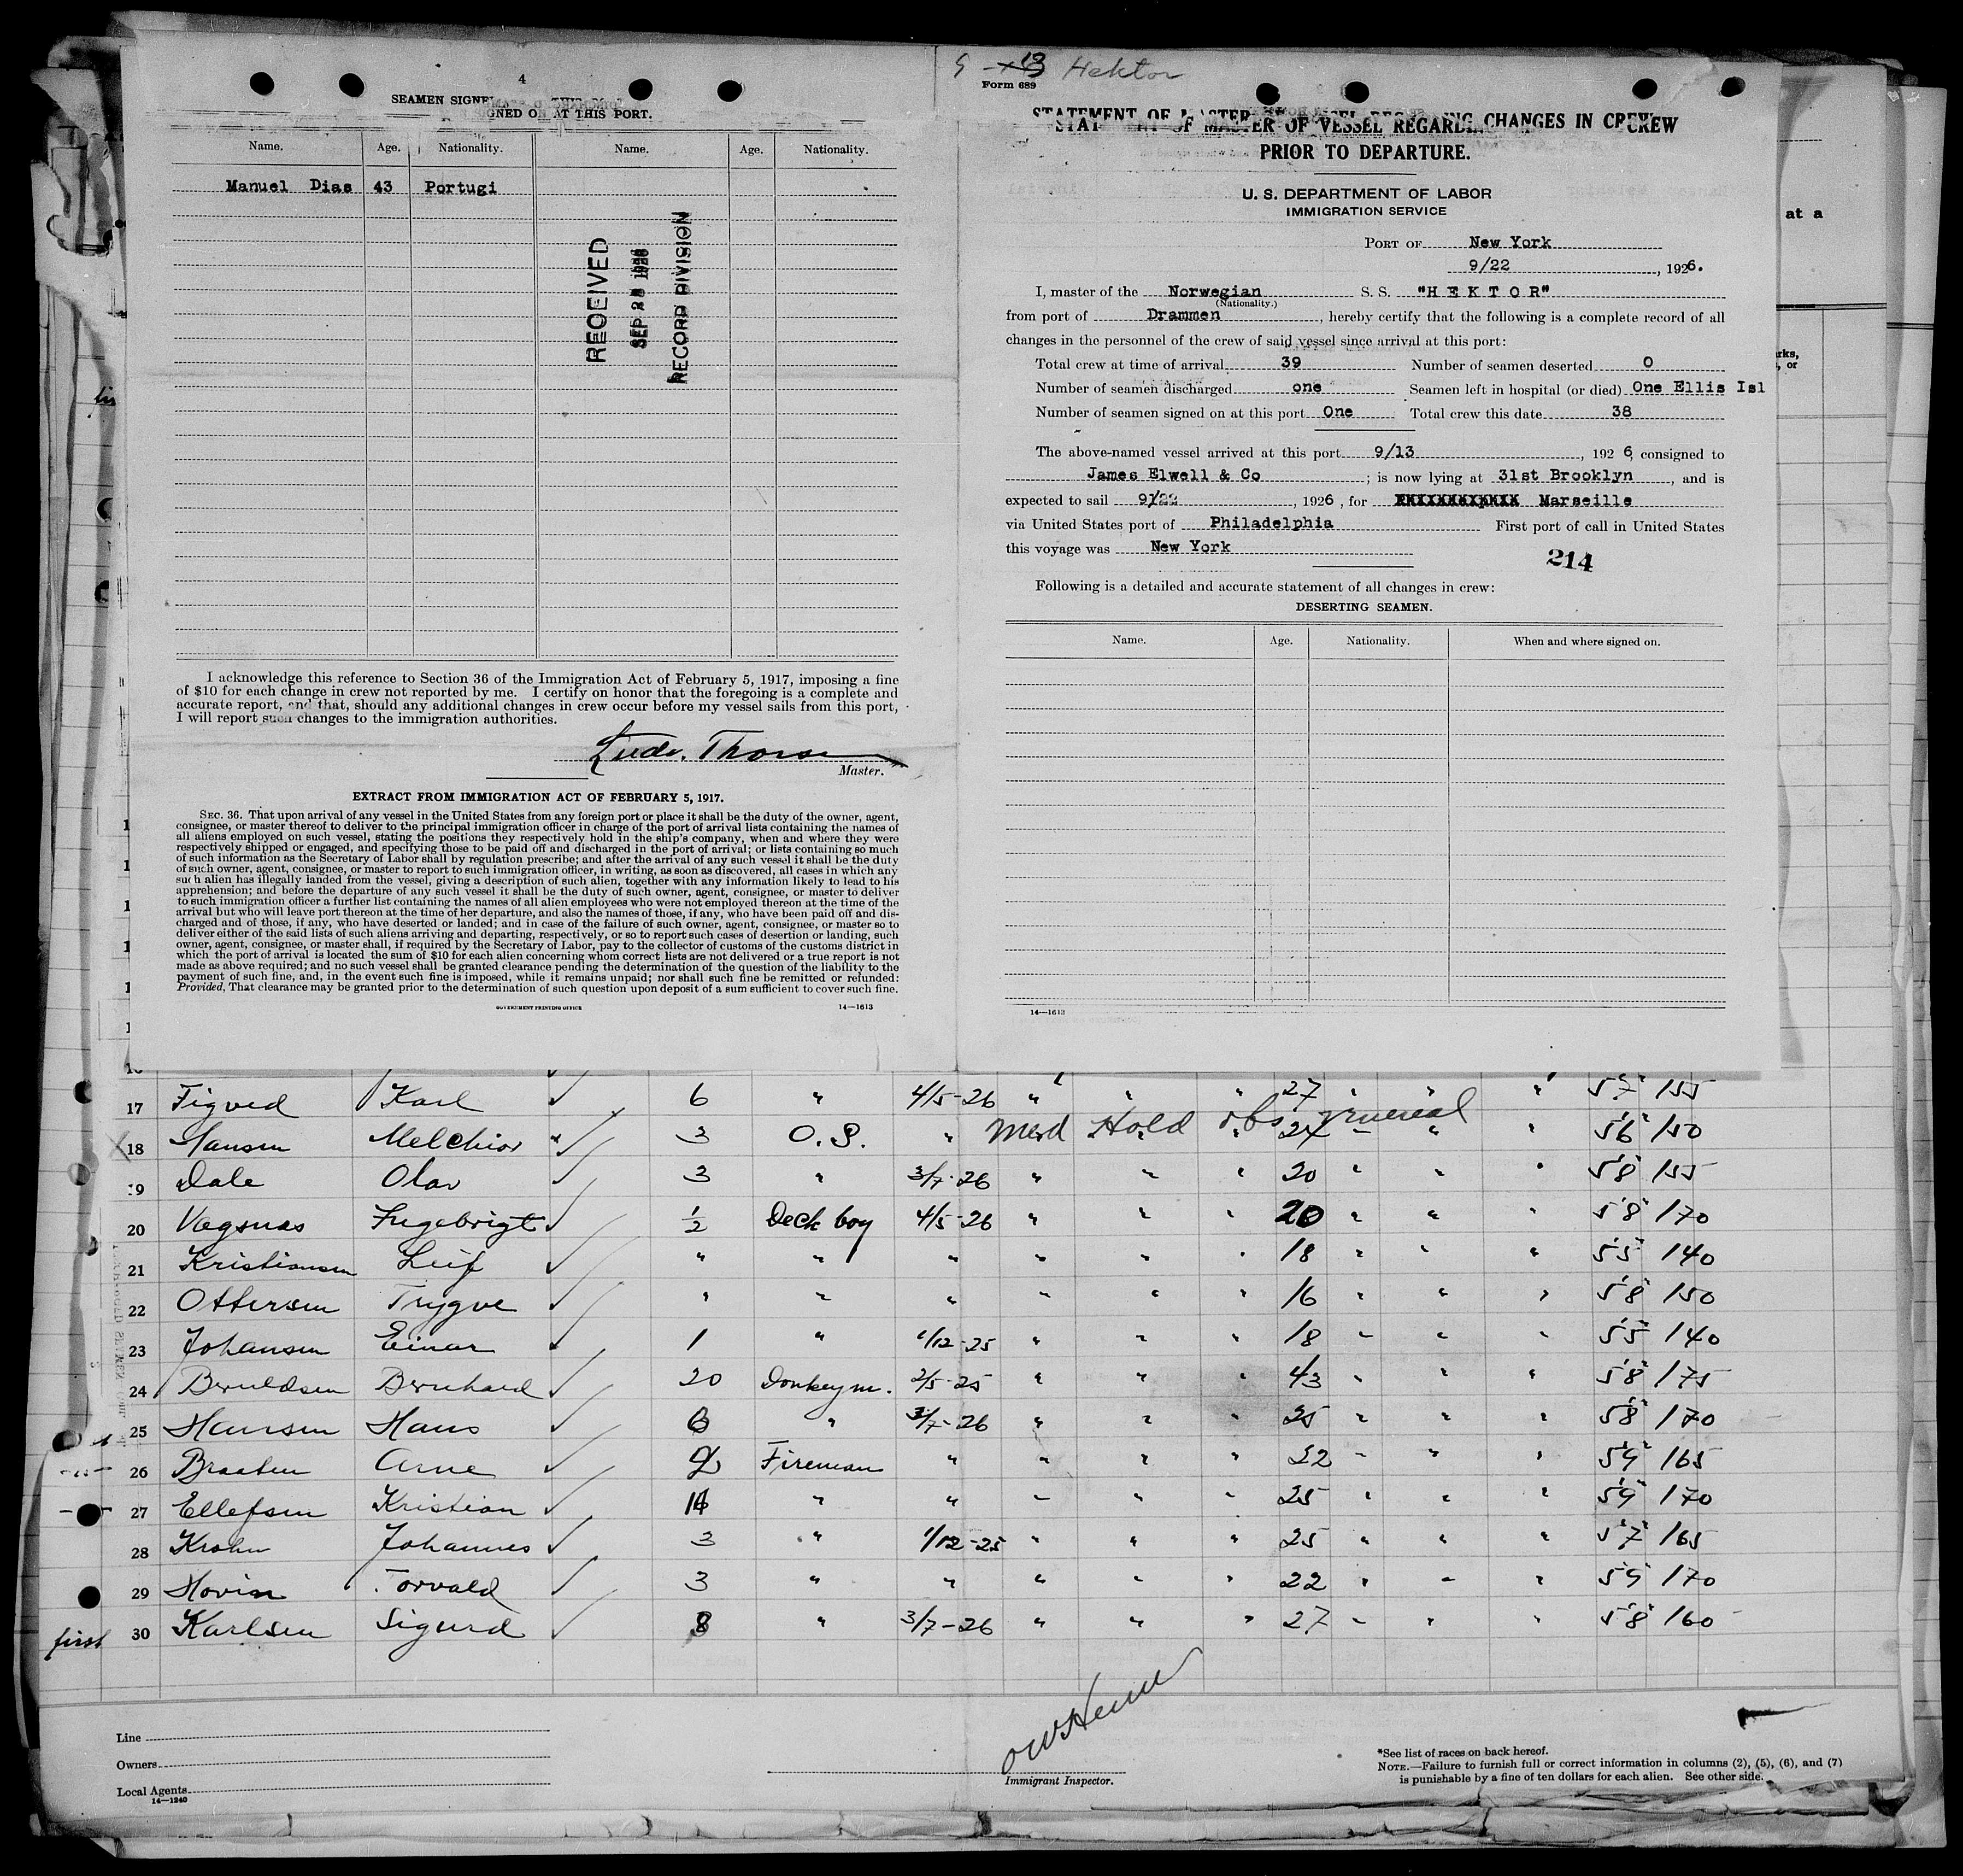 4
SEAMEN SIGNED ON AT THIS PORT.
Name. Age. Nationality. Name. Age. Nationality.
Manuel Dias 43 Portugi
RECEIVED
SEP 1926
RECORD DIVISION
I acknowledge this reference to Section 36 of the Immigration Act of February 5, 1917, imposing a fine
of $10 for each change in crew not reported by me. I certify on honor that the foregoing is a complete and
accurate report, and that, should any additional changes in crew occur before my vessel sails from this port,
I will report such changes to the immigration authorities.
Master.
EXTRACT FROM IMMIGRATION ACT OF FEBRUARY 5, 1917.
SEC. 36. That upon arrival of any vessel in the United States from any foreign port or place it shall be the duty of the owner, agent,
consignee, or master thereof to deliver to the principal immigration officer in charge of the port of arrival lists containing the names of
all aliens employed on such vessel, stating the positions they respectively hold in the ship's company, when and where they were
respectively shipped or engaged, and specifying those to be paid off and discharged in the port of arrival; or lists containing so much
of such information as the Secretary of Labor shall by regulation prescribe; and after the arrival of any such vessel it shall be the duty
of such owner, agent, consignee, or master to report to such immigration officer, in writing, as soon as discovered, all cases in which any
such alien has illegally landed from the vessel, giving a description of such alien, together with any information likely to lead to his
apprehension; and before the departure of any such vessel it shall be the duty of such owner, agent, consignee, or master to deliver
to such immigration officer a further list containing the names of all alien employees who were not employed thereon at the time of the
arrival but who will leave port thereon at the time of her departure, and also the names of those, if any, who have been paid off and dis-
charged and of those, if any, who have deserted or landed; and in case of the failure of such owner, agent, consignee, or master so to
deliver either of the said lists of such aliens arriving and departing, respectively, or so to report such cases of desertion or landing, such
owner, agent, consignee, or master shall, if required by the Secretary of Labor, pay to the collector of customs of the customs district in
which the port of arrival is located the sum of $10 for each alien concerning whom correct lists are not delivered or a true report is not
made as above required; and no such vessel shall be granted clearance pending the determination of the question of the liability to the
payment of such fine, and, in the event such fine is imposed, while it remains unpaid; nor shall such fine be remitted or refunded:
Provided, That clearance may be granted prior to the determination of such question upon deposit of a sum sufficient to cover such fine.
GOVERNMENT PRINTING OFFICE 14—1613
Hektor
Form 689
STATEMENT OF MASTER OF VESSEL REGARDING CHANGES IN CREW
PRIOR TO DEPARTURE.
U. S. DEPARTMENT OF LABOR
IMMIGRATION SERVICE
PORT OF New York
9/22, 1926.
I, master of the Norwegian S. S. "H E K T O R"
(Nationality.)
from port of Drammen, hereby certify that the following is a complete record of all
changes in the personnel of the crew of said vessel since arrival at this port:
Total crew at time of arrival 39 Number of seamen deserted 0
Number of seamen discharged one Seamen left in hospital (or died) One Ellis Isl
Number of seamen signed on at this port One Total crew this date 38
The above-named vessel arrived at this port 9/13, 1926, consigned to
James Elwell & Co; is now lying at 31st Brooklyn, and is
expected to sail 9/22, 1926, for Marseille
via United States port of Philadelphia First port of call in United States
this voyage was New York
214
Following is a detailed and accurate statement of all changes in crew:
DESERTING SEAMEN.
Name. Age. Nationality. When and where signed on.
14—1613
at a
17 Figved Karl 6 " 4/5-26 " " " 27 " " " 5'7" 155
Med Hold obs venereal
18 Hansen Melchior 3 O.S. " " " 24 " " " 5'6" 150
19 Dale Olav 3 " 3/7-26 " " " 20 " " " 5'8" 155
20 Vagsnas Ingebrigt 1/2 Deck boy 4/5-26 " " " 20 " " " 5'8" 170
21 Kristiansen Leif " " " " " " 18 " " " 5'5" 140
22 Ottersen Trygve " " " " " " 16 " " " 5'8" 150
23 Johansen Einar 1 " 1/12-25 " " " 18 " " " 5'5" 140
24 Bernldsen Bernhard 20 Donkeym. 2/5-25 " " " 43 " " " 5'8" 175
25 Hansen Hans 6 " 3/7-26 " " " 25 " " " 5'8" 170
26 Braaten Arne 2 Fireman " " " " 22 " " " 5'9" 165
27 Ellefsen Kristian " " " " " 25 " " " 5'9" 170
28 Krohn Johannes 3 " 1/12-25 " " " 25 " " " 5'7" 165
29 Hovin Torvald 3 " " " " " 22 " " " 5'9" 170
first 30 Karlsen Sigurd 8 " 3/7-26 " " " 27 " " " 5'8" 160
Line
Owners
Local Agents
14—1240
Immigrant Inspector.
*See list of races on back hereof.
NOTE.—Failure to furnish full or correct information in columns (2), (5), (6), and (7)
is punishable by a fine of ten dollars for each alien. See other side.